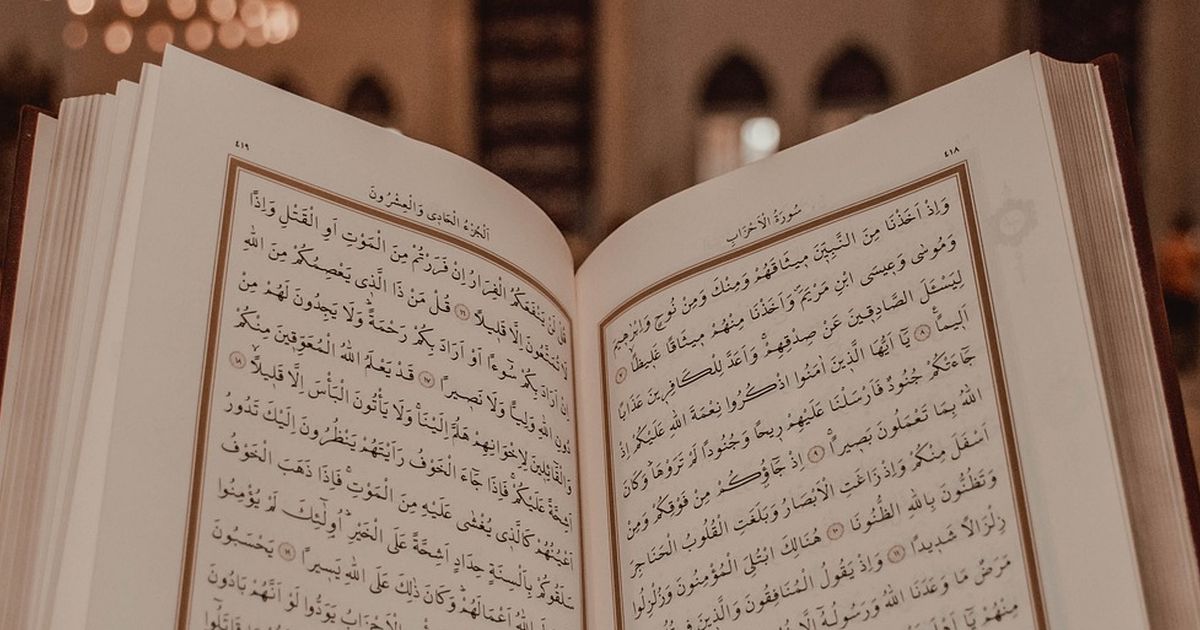 ٤١٨
سُورَةُ الْاَحْزَابِ
وَاِذْ اَخَذْنَا مِنَ النَّبِيّٖنَ مٖيثَاقَهُمْ وَمِنْكَ وَمِنْ نُوحٍ وَاِبْرٰهٖيمَ
وَمُوسٰى وَعٖيسَى ابْنِ مَرْيَمَ وَاَخَذْنَا مِنْهُمْ مٖيثَاقًا غَلٖيظًا ٧
لِيَسْـَٔلَ الصَّادِقٖينَ عَنْ صِدْقِهِمْ وَاَعَدَّ لِلْكَافِرٖينَ عَذَابًا
اَلٖيمًا ٨ يَٓا اَيُّهَا الَّذٖينَ اٰمَنُوا اذْكُرُوا نِعْمَةَ اللّٰهِ عَلَيْكُمْ اِذْ
جَٓاءَتْكُمْ جُنُودٌ فَاَرْسَلْنَا عَلَيْهِمْ رٖيحًا وَجُنُودًا لَمْ تَرَوْهَا وَكَانَ
اللّٰهُ بِمَا تَعْمَلُونَ بَصٖيرًا ٩ اِذْ جَٓاؤُ۫كُمْ مِنْ فَوْقِكُمْ وَمِنْ
اَسْفَلَ مِنْكُمْ وَاِذْ زَاغَتِ الْاَبْصَارُ وَبَلَغَتِ الْقُلُوبُ الْحَنَاجِرَ
وَتَظُنُّونَ بِاللّٰهِ الظُّنُونَا ١٠ هُنَالِكَ ابْتُلِيَ الْمُؤْمِنُونَ وَزُلْزِلُوا
زِلْزَالًا شَدٖيدًا ١١ وَاِذْ يَقُولُ الْمُنَافِقُونَ وَالَّذٖينَ فٖي
مَرَضٌ مَا وَعَدَنَا اللّٰهُ وَرَسُولُهُٓ اِلَّا
مِنْهُمْ يَٓا اَهْلَ
٤١٩
اَلْجُزْءُ الْحَادٖى وَالْعِشْرُونَ
قُلْ لَنْ يَنْفَعَكُمُ الْفِرَارُ اِنْ فَرَرْتُمْ مِنَ الْمَوْتِ اَوِ الْقَتْلِ وَاِذًا
لَا تُمَتَّعُونَ اِلَّا قَلٖيلًا ١٦ قُلْ مَنْ ذَا الَّذٖى يَعْصِمُكُمْ مِنَ اللّٰهِ
اِنْ اَرَادَ بِكُمْ سُٓوءًا اَوْ اَرَادَ بِكُمْ رَحْمَةً وَلَا يَجِدُونَ لَهُمْ مِنْ
دُونِ اللّٰهِ وَلِيًّا وَلَا نَصٖيرًا ١٧ قَدْ يَعْلَمُ اللّٰهُ الْمُعَوِّقٖينَ مِنْكُمْ
وَالْقَٓائِلٖينَ لِاِخْوَانِهِمْ هَلُمَّ اِلَيْنَا وَلَا يَأْتُونَ الْبَأْسَ اِلَّا قَلٖيلًا ١٨
اَشِحَّةً عَلَيْكُمْ فَاِذَا جَٓاءَ الْخَوْفُ رَاَيْتَهُمْ يَنْظُرُونَ اِلَيْكَ تَدُورُ
اَعْيُنُهُمْ كَالَّذٖى يُغْشٰى عَلَيْهِ مِنَ الْمَوْتِ فَاِذَا ذَهَبَ الْخَوْفُ
سَلَقُوكُمْ بِاَلْسِنَةٍ حِدَادٍ اَشِحَّةً عَلَى الْخَيْرِ اُو۬لٰٓئِكَ لَمْ يُؤْمِنُوا
اللّٰهُ اَعْمَالَهُمْ وَكَانَ ذٰلِكَ عَلَى اللّٰهِ يَسٖيرًا ١٩ يَحْسَبُونَ
الْاَحْزَابُ يَوَدُّوا لَوْ اَنَّهُمْ بَادُونَ